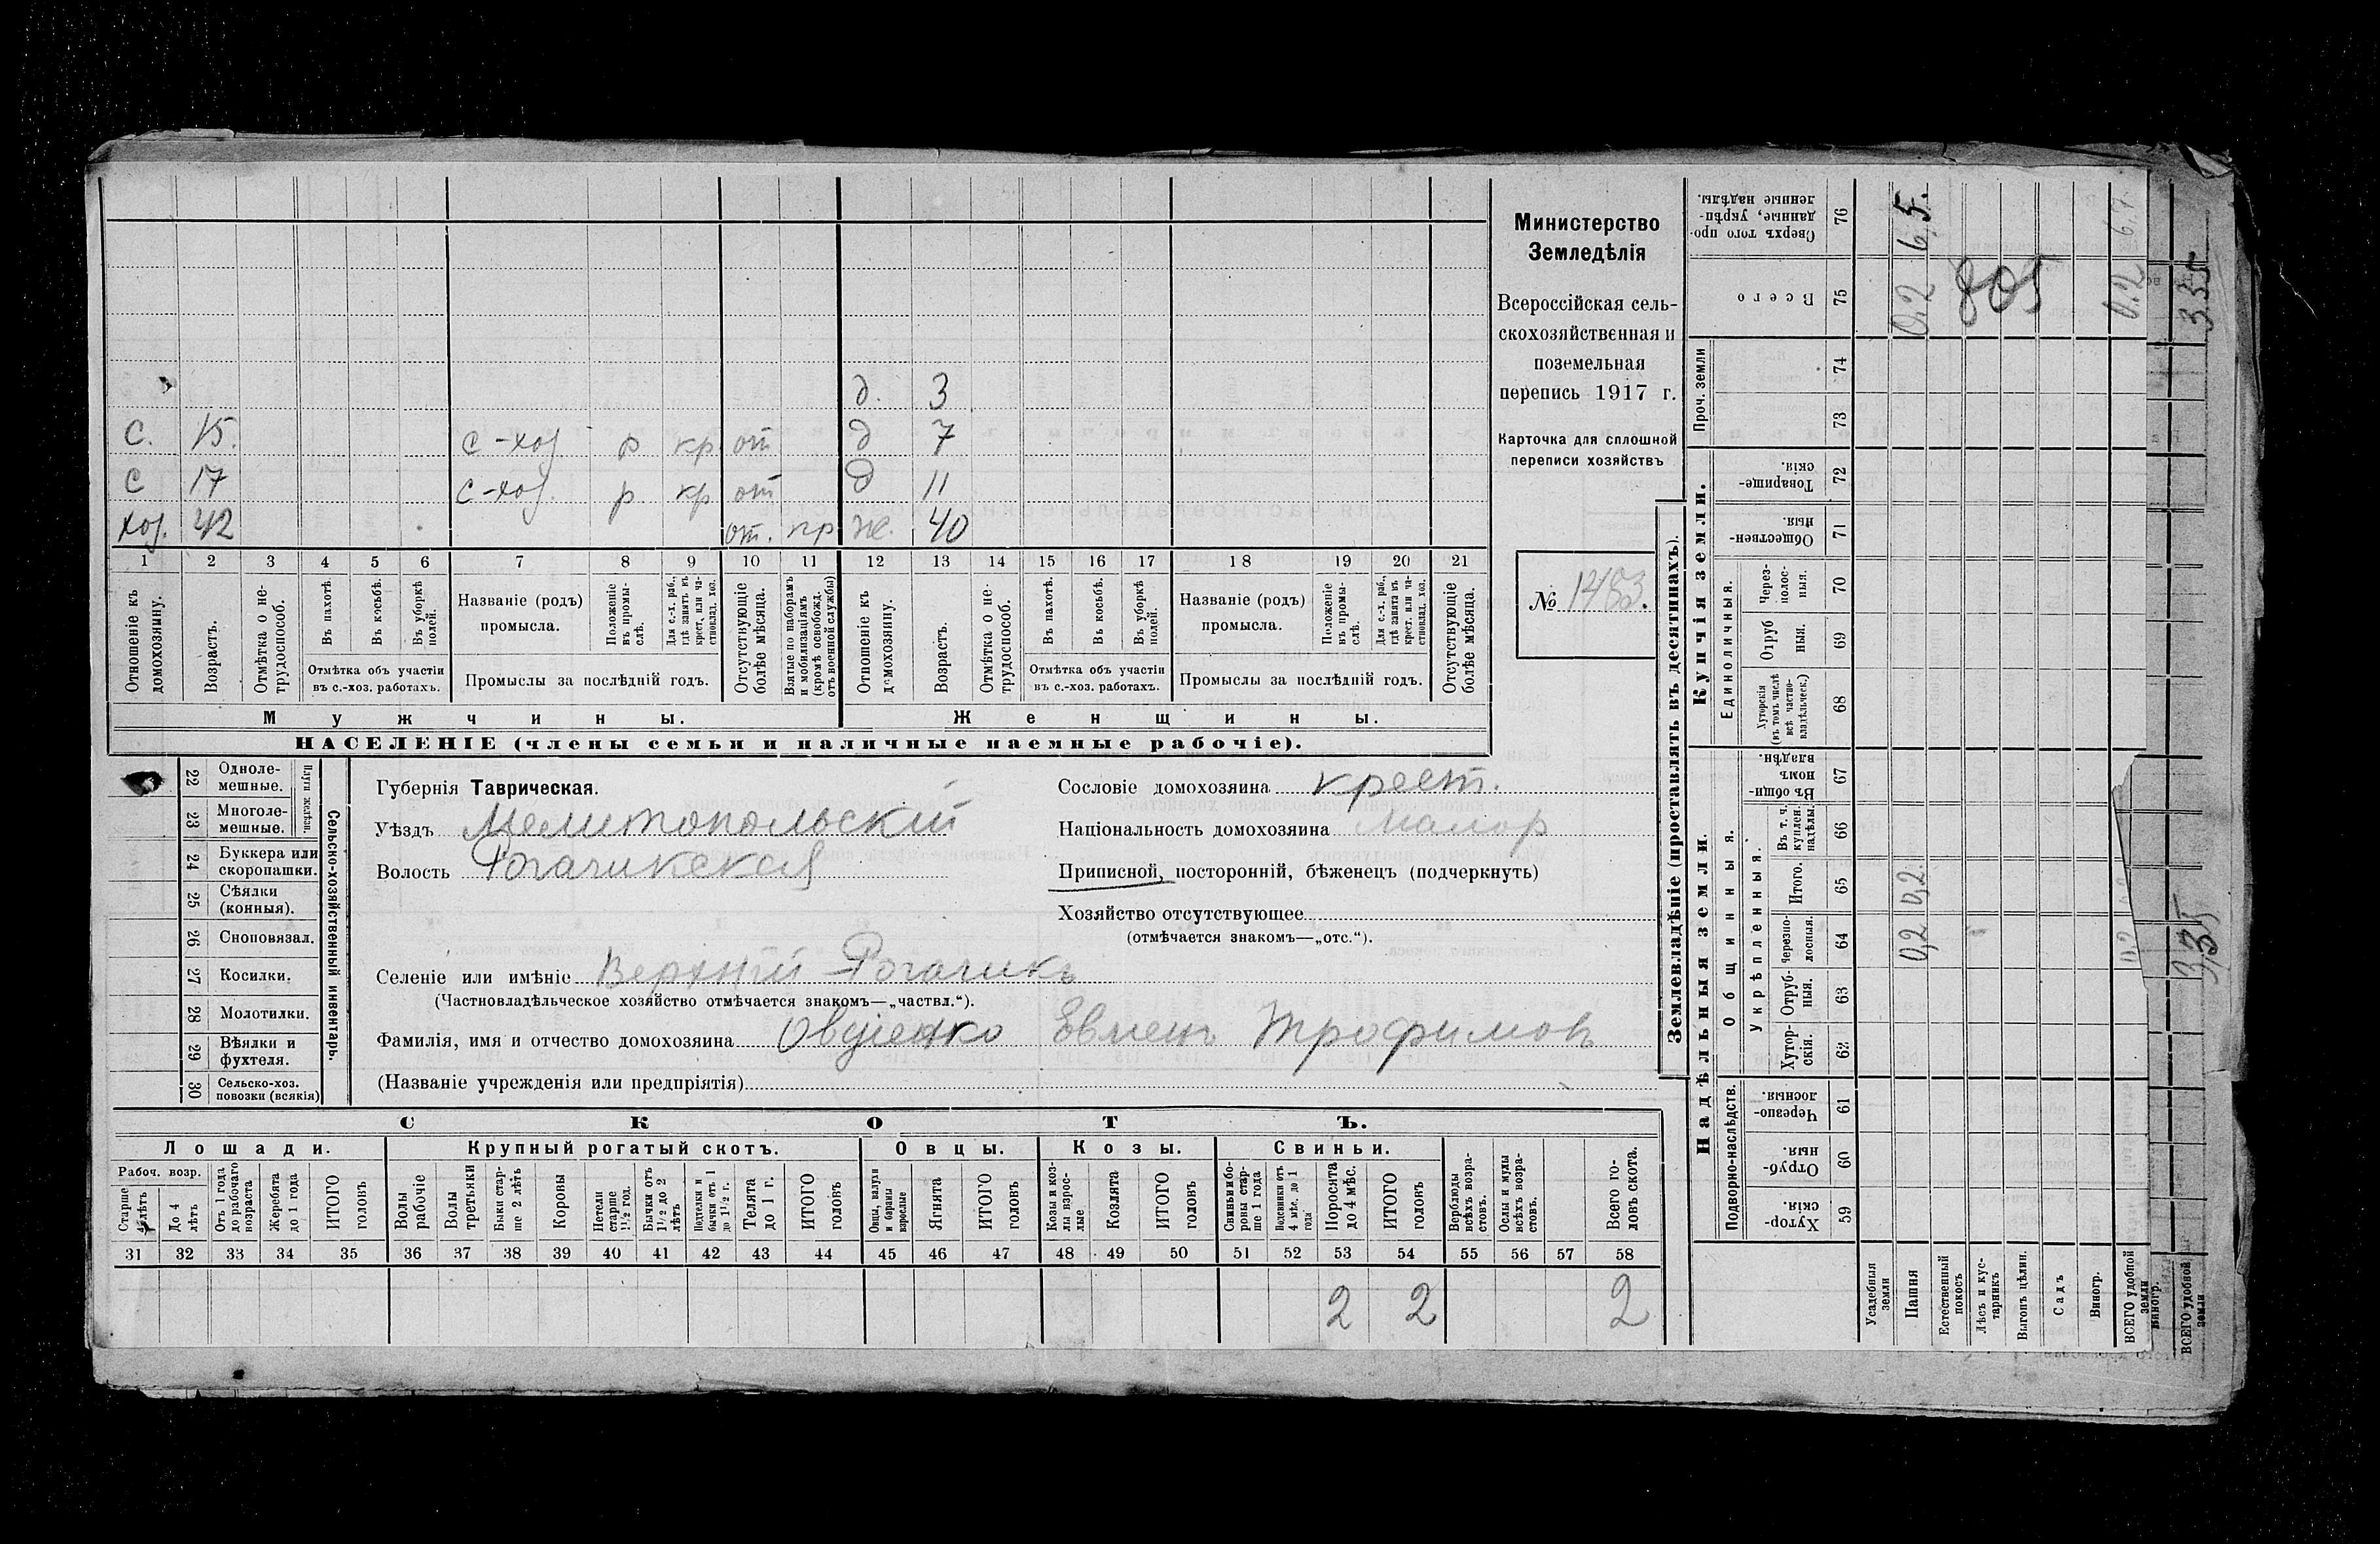 д. 3
С. 15. с-хоз р кр от д 7
С 17 с-хоз. р кр от д 11
хоз. 42 от. пр ж. 40
1 2 3 4 5 6 7 8 9 10 11 12 13 14 15 16 17 18 19 20 21
Отношеніе къ домохозяину.
Возрастъ.
Отмѣтка о нетрудоспособ.
Въ пахотѣ.
Въ косьбѣ.
Въ уборкѣ полей.
Отмѣтка объ участіи
въ с.-хоз. работахъ.
Названіе (родъ)
промысла.
Положеніе въ промыслѣ.
Для с.-х. раб., гдѣ занятъ въ крест. или частновлад. хоз.
Промыслы за послѣдній годъ.
Отсутствующіе болѣе мѣсяца.
Взятые по наборамъ и мобилизаціямъ (кромѣ освобожд. отъ военной службы)
Отношеніе къ домохозяину.
Возрастъ.
Отмѣтка о нетрудоспособ.
Въ пахотѣ.
Въ косьбѣ.
Въ уборкѣ полей.
Отмѣтка объ участіи
въ с.-хоз. работахъ.
Названіе (родъ)
промысла.
Положеніе въ промыслѣ.
Для с.-х. раб., гдѣ занята въ крест. или частновлад. хоз.
Промыслы за послѣдній годъ.
Отсутствующіе болѣе мѣсяца.
Мужчины.
Женщины.
НАСЕЛЕНІЕ (члены семьи и наличные наемные рабочіе).
Министерство
Земледѣлія
Всероссійская сель-
скохозяйственная и
поземельная
перепись 1917 г.
Карточка для сплошной
переписи хозяйствъ
№ 1483.
Сельско-хозяйственный инвентарь.
Плуги желѣзн.
22 Одноле-
мешные.
23 Многоле-
мешные.
24 Буккера или
скоропашки.
25 Сѣялки
(конныя).
26 Сноповязал.
27 Косилки.
28 Молотилки.
29 Вѣялки и
фухтеля.
30 Сельско-хоз.
повозки (всякія)
Губернія Таврическая.
Уѣздъ Мелитопольскій
Волость Рогачикская
Селеніе или имѣніе Верхній Рогачикъ
(Частновладѣльческое хозяйство отмѣчается знакомъ—„частвл.“).
Фамилія, имя и отчество домохозяина Евмен Трофимовъ
(Названіе учрежденія или предпріятія)
Сословіе домохозяина крест.
Національность домохозяина малор
Приписной, посторонній, бѣженецъ (подчеркнуть)
Хозяйство отсутствующее
(отмѣчается знакомъ—„отс.“).
СКОТЪ.
Лошади. Крупный рогатый скотъ. Овцы. Козы. Свиньи.
Рабоч. возр.
Старше 4 лѣтъ
До 4 лѣтъ
Отъ 1 года до рабочаго возраста
Жеребята до 1 года
ИТОГО головъ
Волы рабочіе
Волы третьяки
Быки старше 2 лѣтъ
Коровы
Нетели старше 1½ год.
Бычки отъ 1½ до 2 лѣтъ
Подтелки и бычки отъ 1 до 1½ г.
Телята до 1 г.
ИТОГО головъ
Овцы, валухи и бараны взрослые
Ягнята
ИТОГО головъ
Козы и козлы взрослые
Козлята
ИТОГО головъ
Свиньи и боровы старше 1 года
Подсвинки отъ 4 мѣс. до 1 года
Поросята до 4 мѣс.
ИТОГО головъ
Верблюды всѣхъ возрастовъ.
Ослы и мулы всѣхъ возрастовъ.
Всего головъ скота.
31 32 33 34 35 36 37 38 39 40 41 42 43 44 45 46 47 48 49 50 51 52 53 54 55 56 57 58
2 2 2
Землевладѣніе (проставлять въ десятинахъ).
Купчія земли.
Надѣльныя земли.
Проч. земли
Единоличныя.
Общинныя.
Укрѣпленныя.
Подворно-наслѣдств.
Сверхъ того проданные, укрѣпленные надѣлы. 76
Всего 75
74
73
Товарищескія. 72
Общественныя. 71
Черезполосныя. 70
Отрубныя. 69
Хуторскія (въ томъ числѣ всѣ частновладѣльческ.) 68
Въ общинномъ владѣн. 67
Въ т. ч. куплен. надѣлы. 66
Итого. 65
Черезполосныя. 64
Отрубныя. 63
Хуторскія. 62
Черезполосныя. 61
Отрубныя. 60
Хуторскія. 59
Усадебныя земли
Пашня
Естественный покосъ
Лѣсъ и кустарникъ
Выгонъ цѣлин.
Садъ
Виногр.
ВСЕГО удобной земли
виногр.
ВСЕГО удобной земли
0,2 6,5.
805
0,2 0,2.
0,2
3.35
3,35